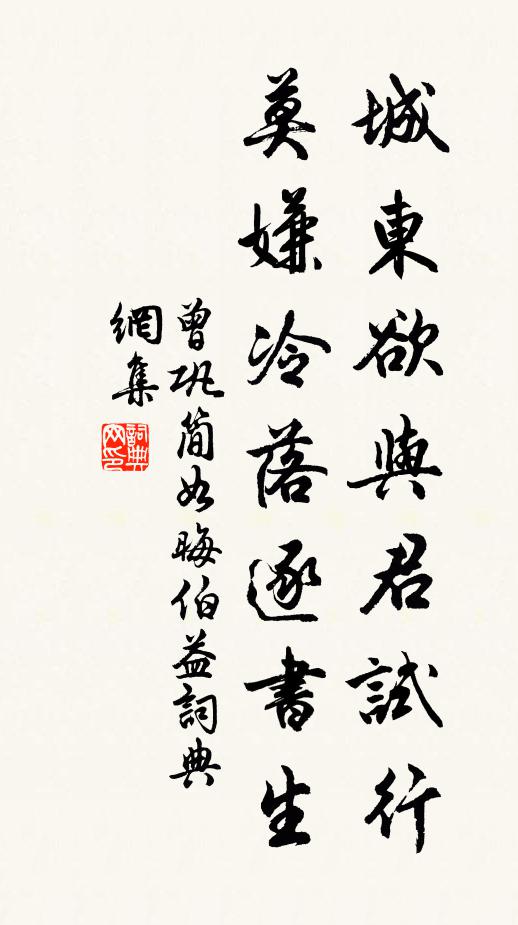 城東欲與君試行
莫嫌冷落逐書生
曾巩简如晦伯益詞典
網集
詞典網印